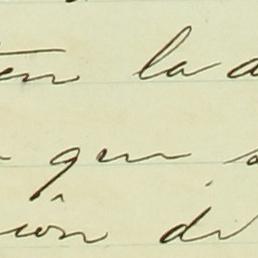 ten la d
que s
ción de